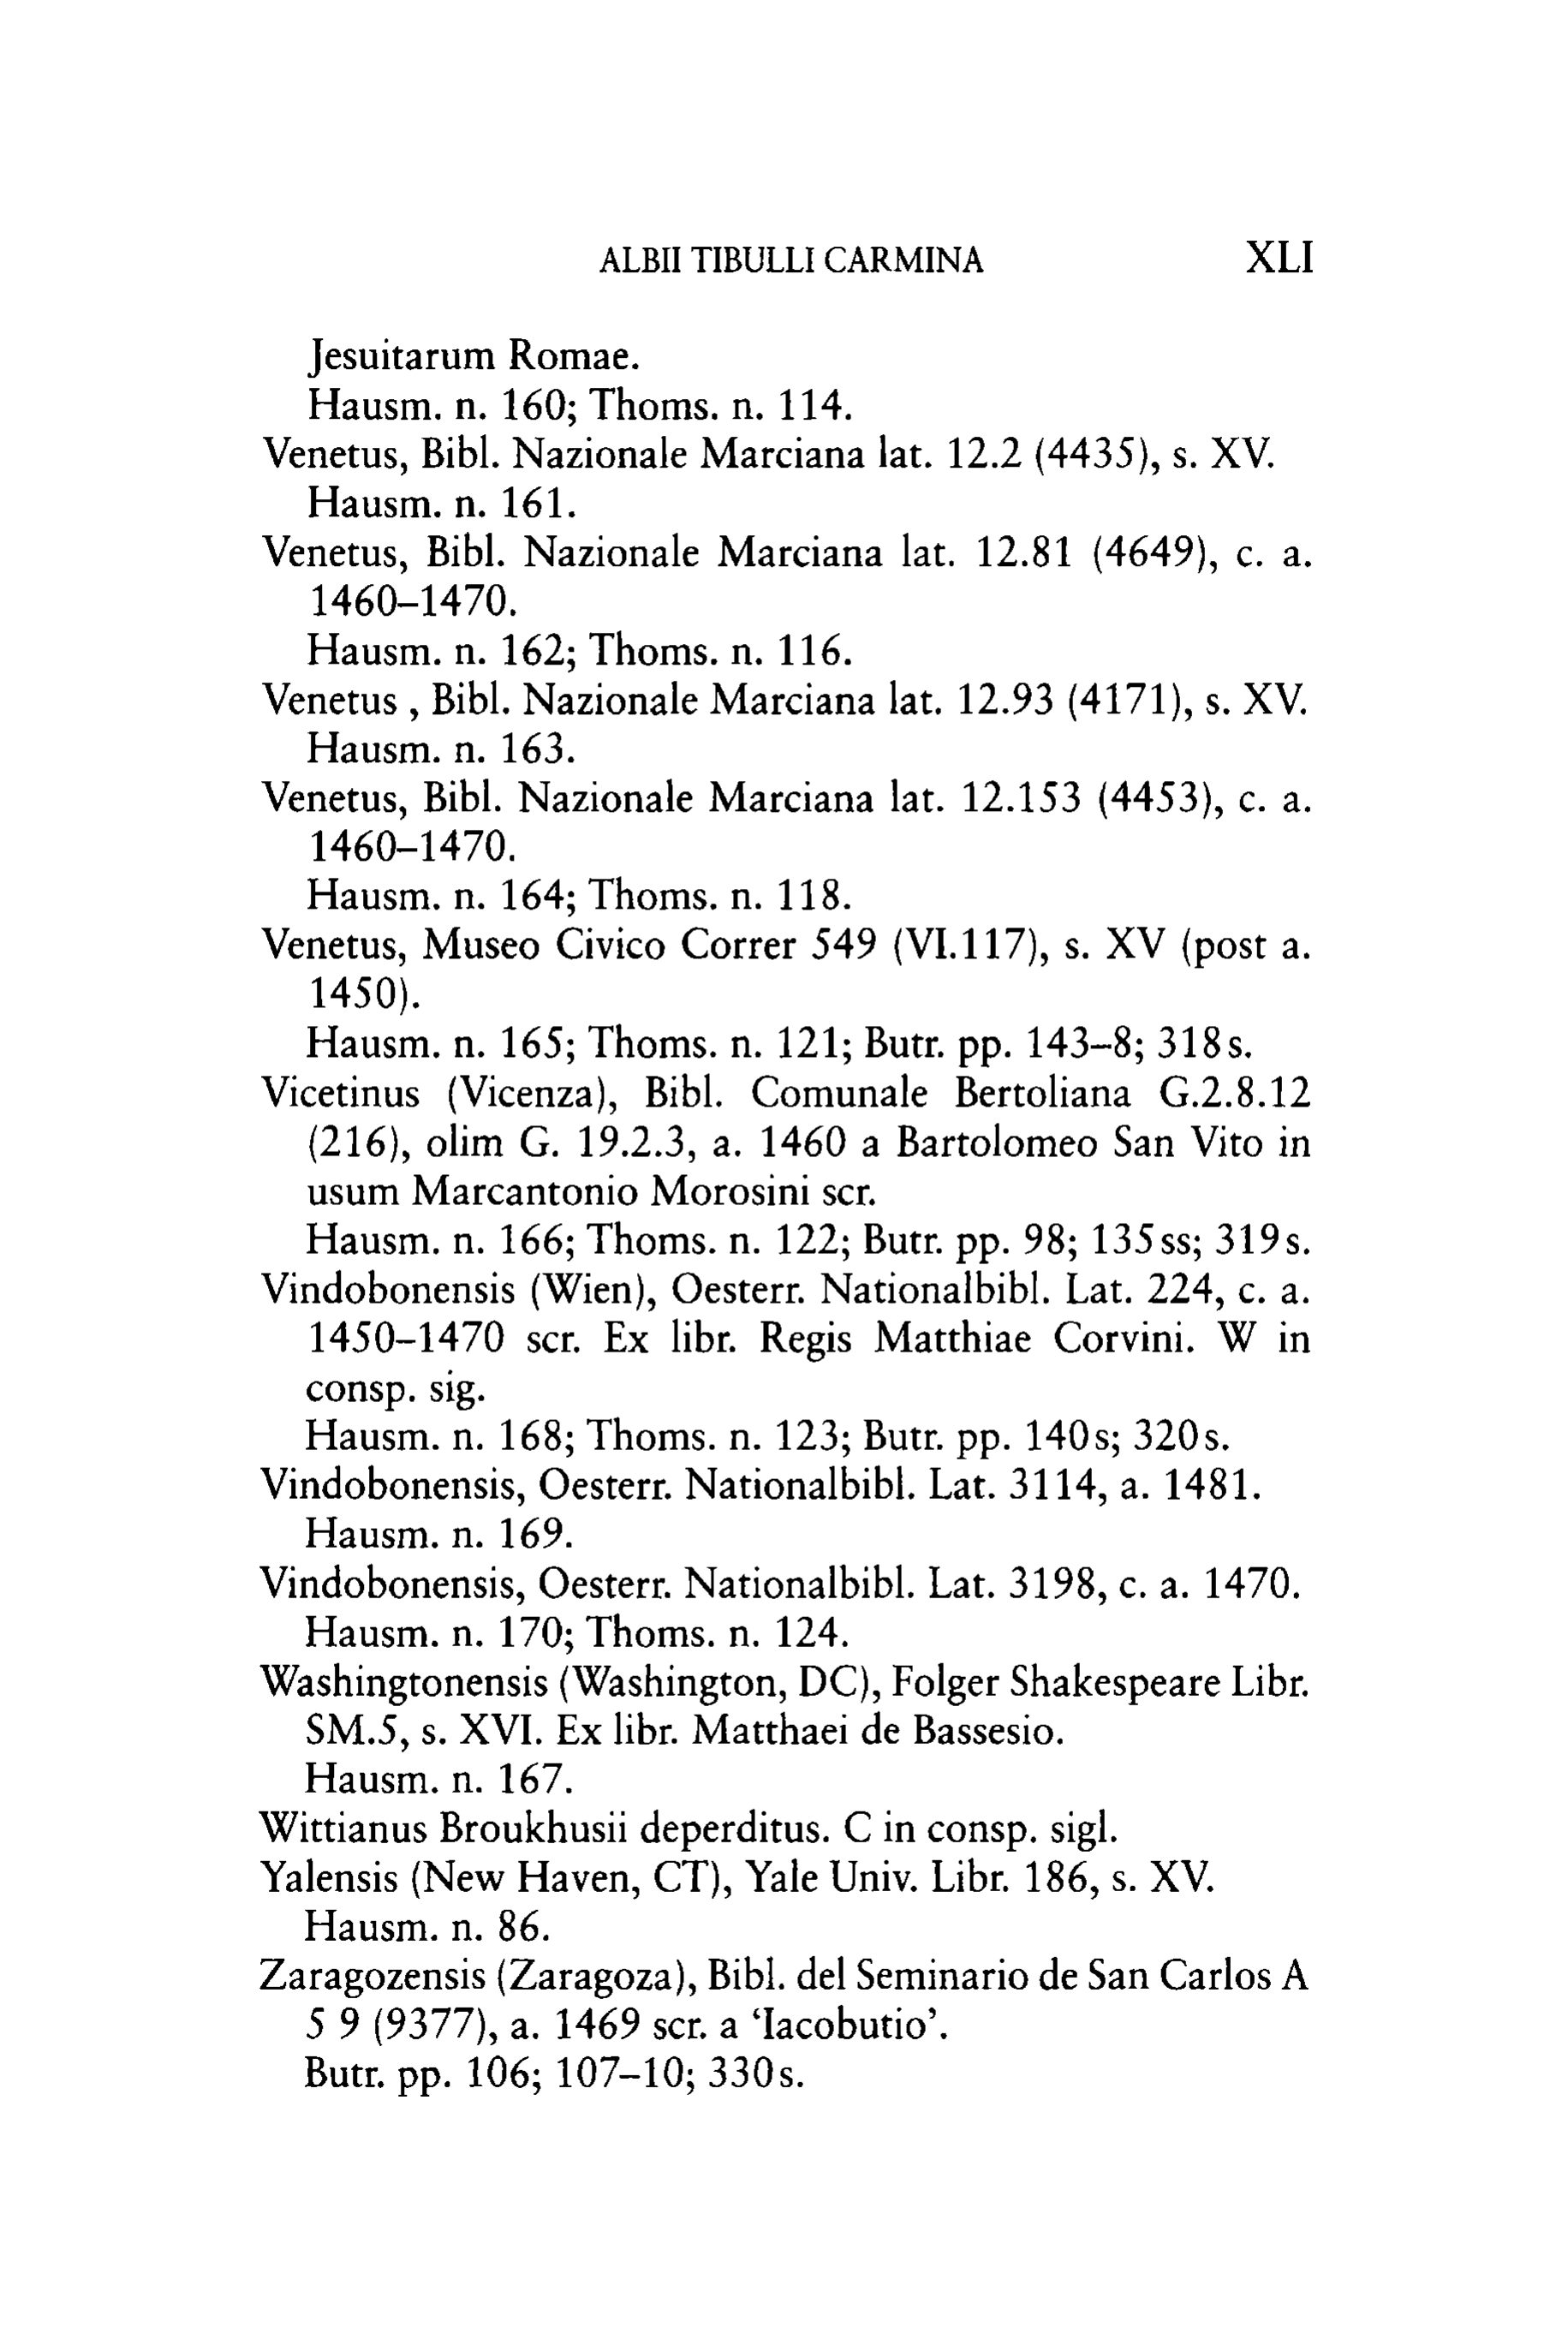 ALBII TIBULLI CARMINA XLI
Jesuitarum Romae.
Hausm. n. 160; Thoms. n. 114.
Venetus, Bibl. Nazionale Marciana lat. 12.2 (4435), s. XV.
Hausm. n. 161.
Venetus, Bibl. Nazionale Marciana lat. 12.81 (4649), c. a.
1460–1470.
Hausm. n. 162; Thoms. n. 116.
Venetus , Bibl. Nazionale Marciana lat. 12.93 (4171), s. XV.
Hausm. n. 163.
Venetus, Bibl. Nazionale Marciana lat. 12.153 (4453), c. a.
1460–1470.
Hausm. n. 164; Thoms. n. 118.
Venetus, Museo Civico Correr 549 (VI.117), s. XV (post a.
1450).
Hausm. n. 165; Thoms. n. 121; Butr. pp. 143–8; 318 s.
Vicetinus (Vicenza), Bibl. Comunale Bertoliana G.2.8.12
(216), olim G. 19.2.3, a. 1460 a Bartolomeo San Vito in
usum Marcantonio Morosini scr.
Hausm. n. 166; Thoms. n. 122; Butr. pp. 98; 135 ss; 319 s.
Vindobonensis (Wien), Oesterr. Nationalbibl. Lat. 224, c. a.
1450–1470 scr. Ex libr. Regis Matthiae Corvini. W in
consp. sig.
Hausm. n. 168; Thoms. n. 123; Butr. pp. 140 s; 320 s.
Vindobonensis, Oesterr. Nationalbibl. Lat. 3114, a. 1481.
Hausm. n. 169.
Vindobonensis, Oesterr. Nationalbibl. Lat. 3198, c. a. 1470.
Hausm. n. 170; Thoms. n. 124.
Washingtonensis (Washington, DC), Folger Shakespeare Libr.
SM.5, s. XVI. Ex libr. Matthaei de Bassesio.
Hausm. n. 167.
Wittianus Broukhusii deperditus. C in consp. sigl.
Yalensis (New Haven, CT), Yale Univ. Libr. 186, s. XV.
Hausm. n. 86.
Zaragozensis (Zaragoza), Bibl. del Seminario de San Carlos A
5 9 (9377), a. 1469 scr. a ‘Iacobutio’.
Butr. pp. 106; 107–10; 330 s.